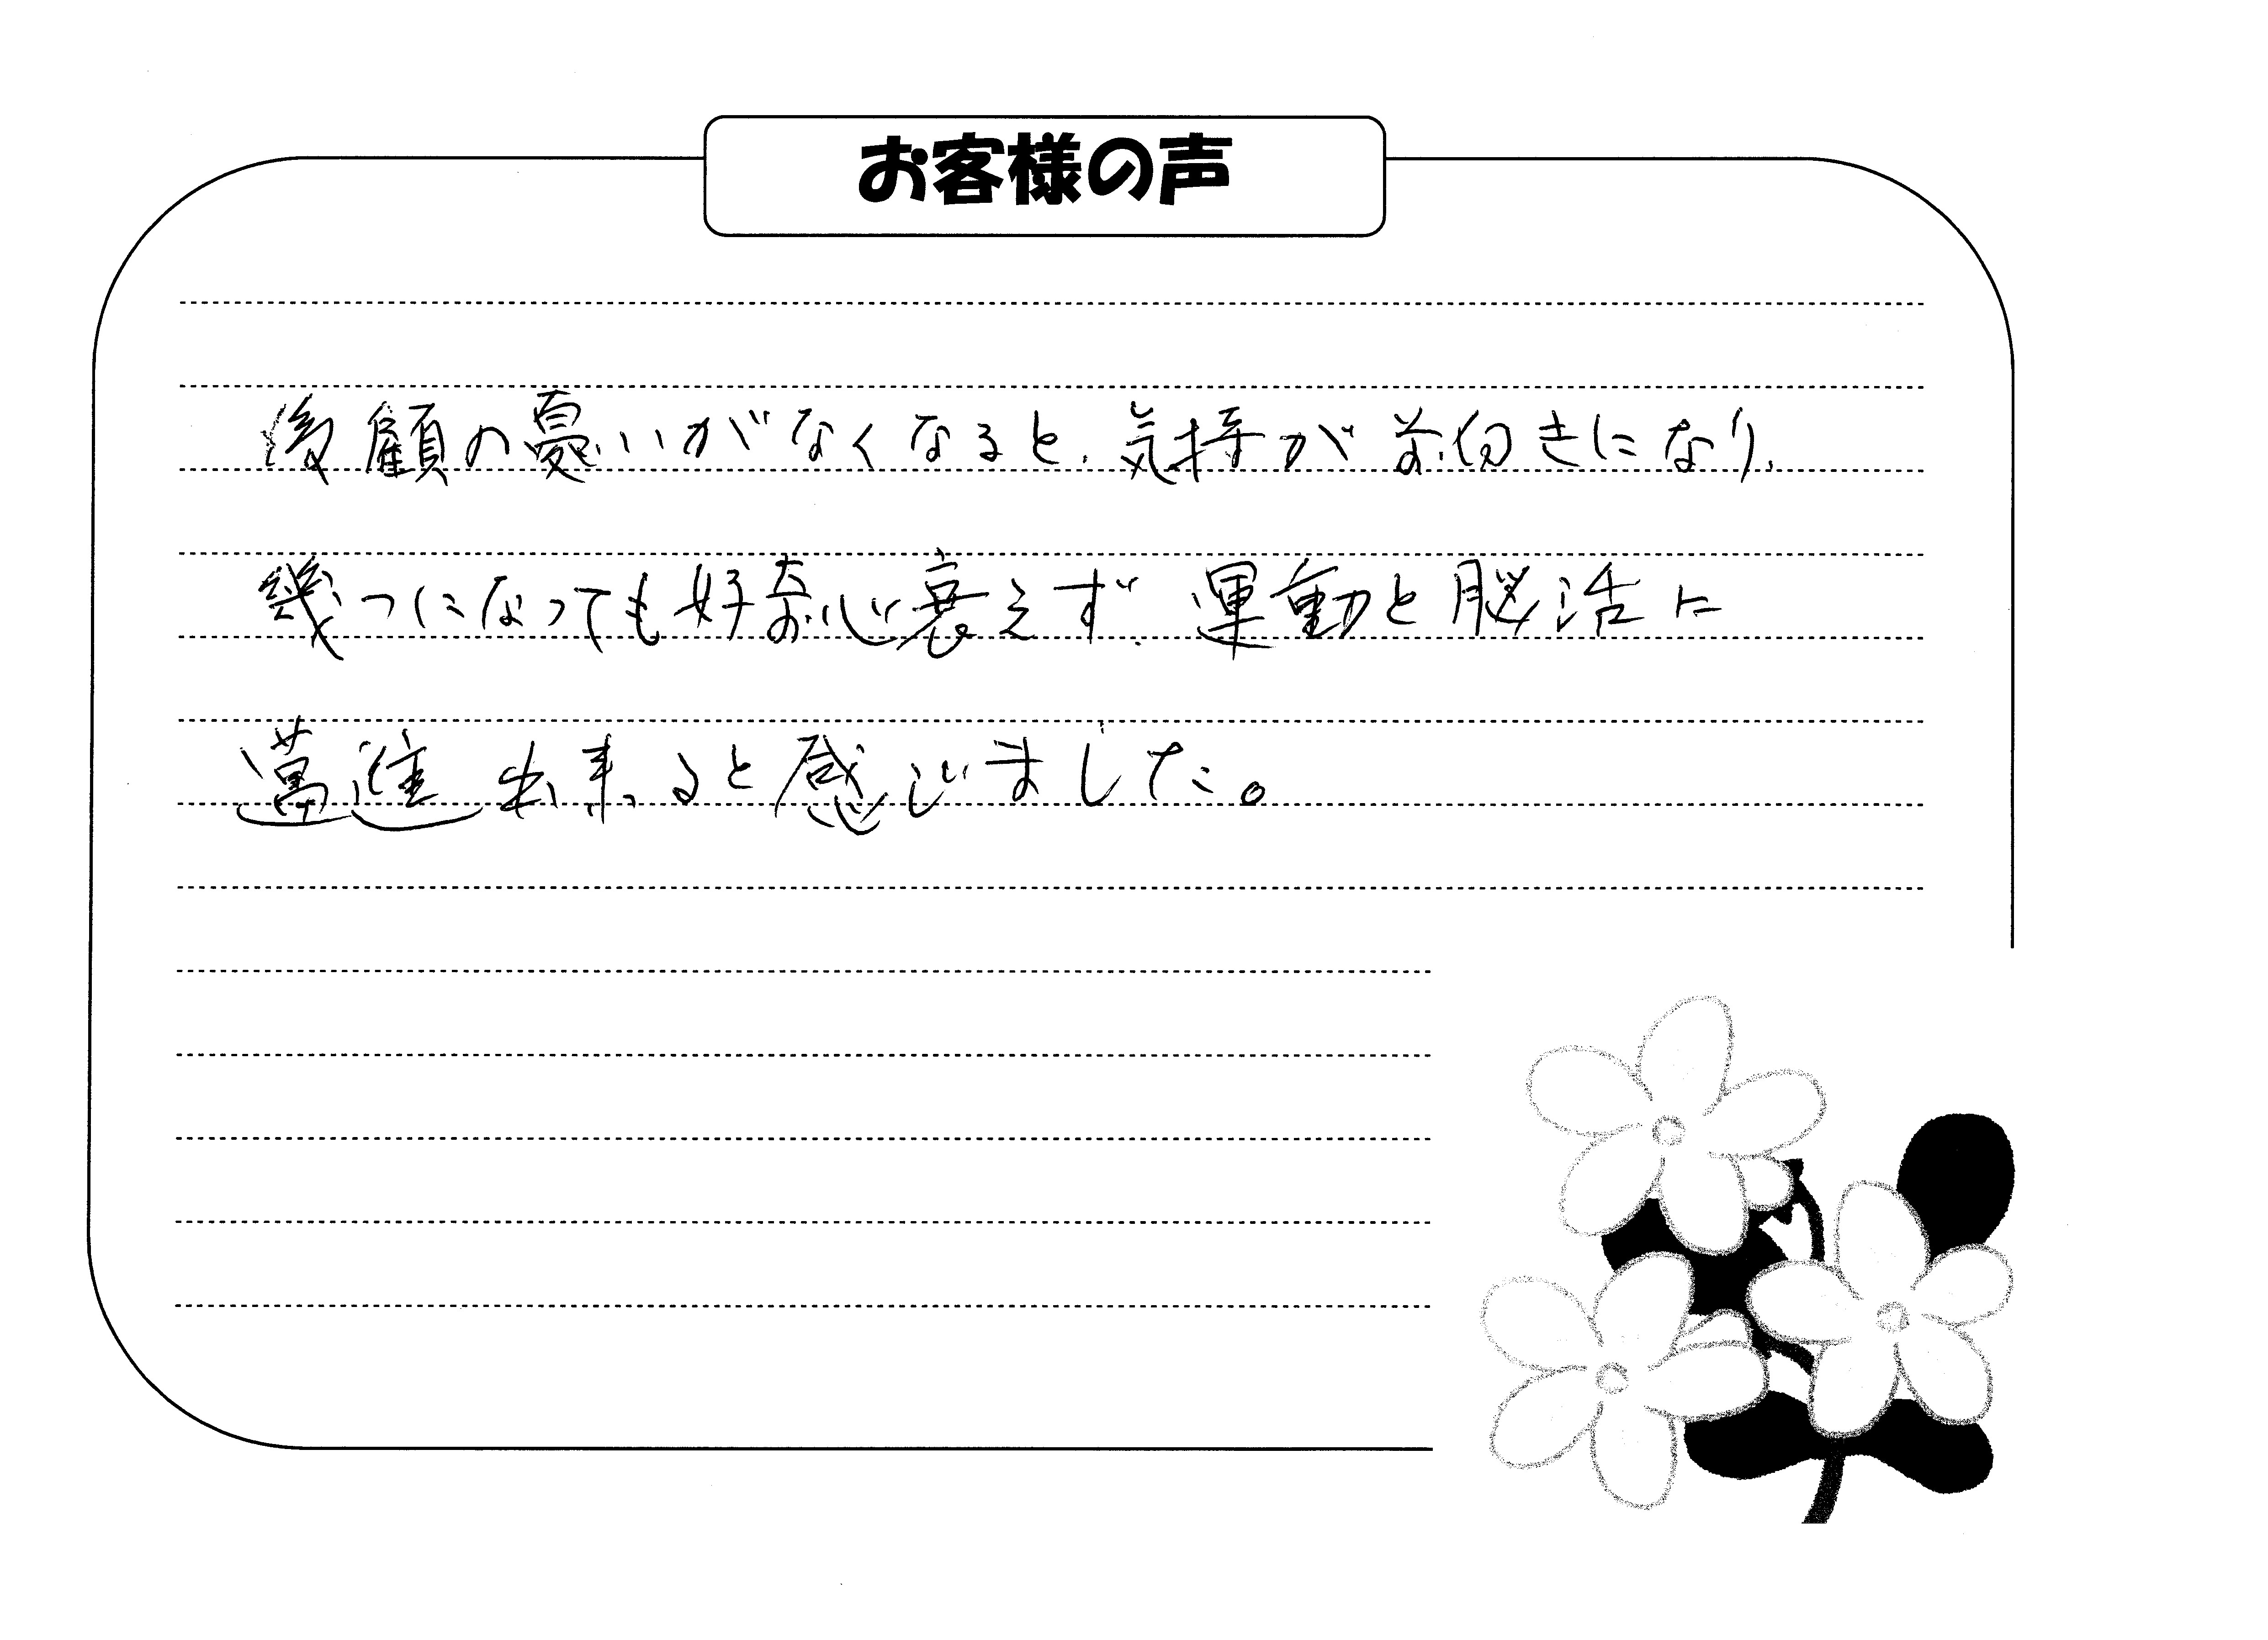 お客様の声
後顧の憂いがなくなると、気持が前向きになり、
幾つになっても好奇心衰えず、運動と脳活に
邁進出来ると感じました。